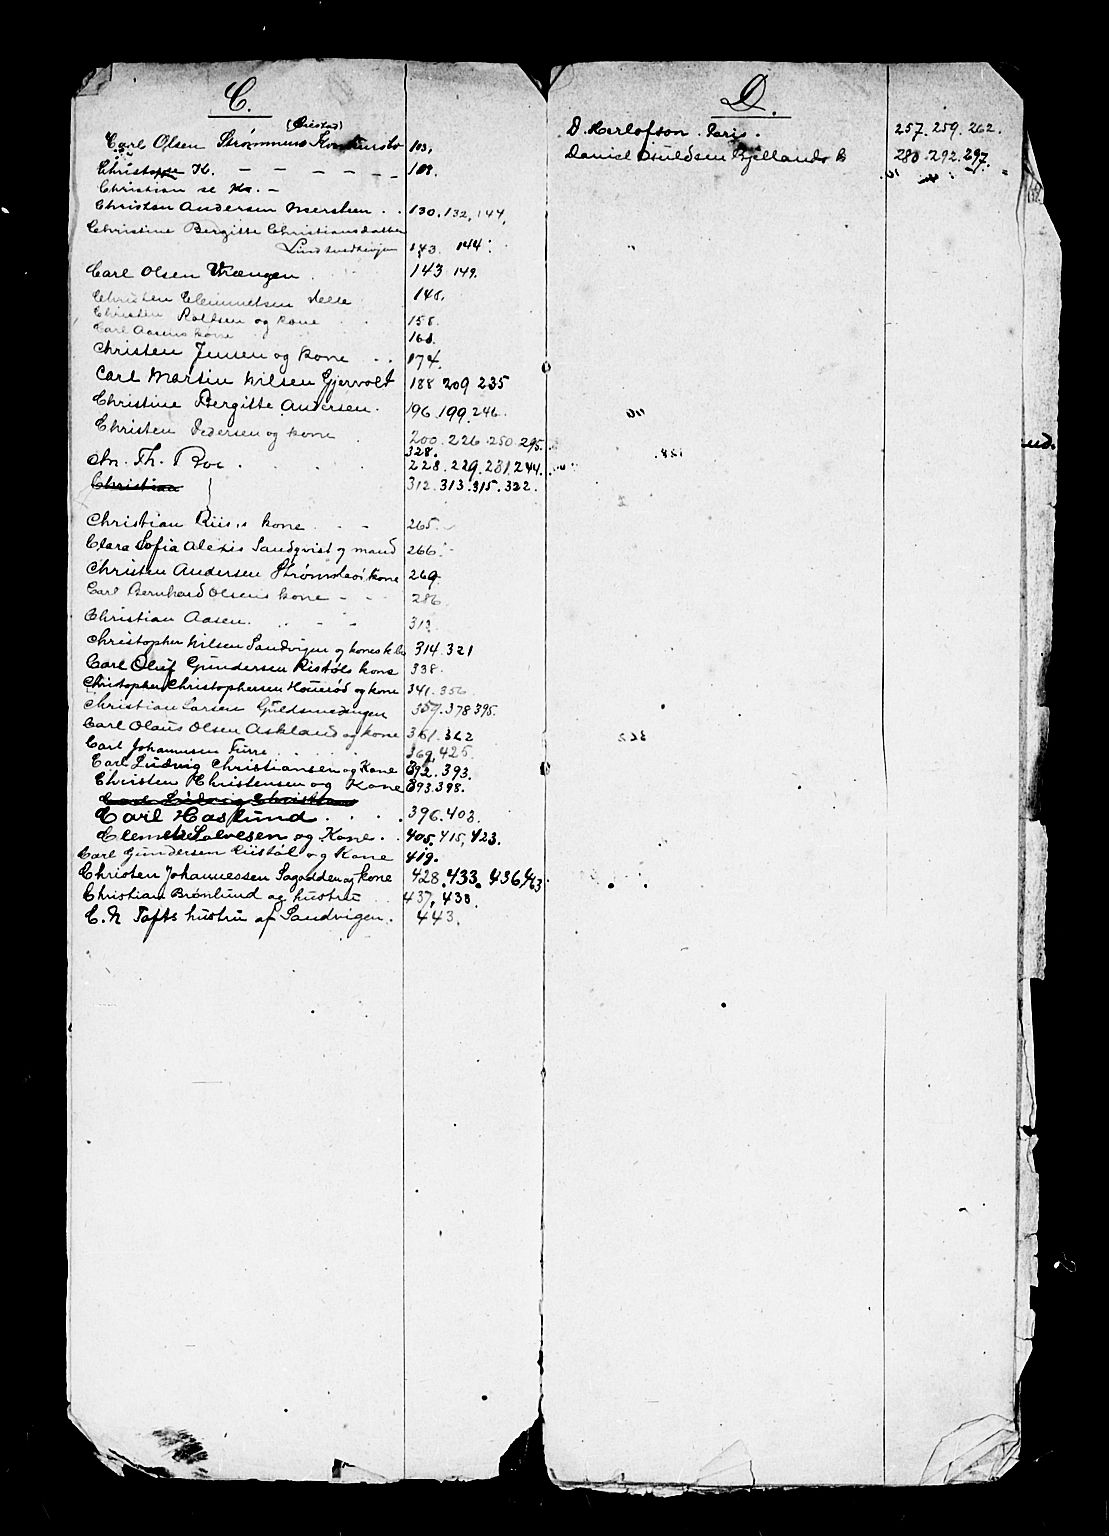 C.
(Øiestad)
Carl Olsen Strømmens 103.
K. - - - - - - 108.
Christian se Ks. -
Christen Andersen . . 130. 132. 147.
Christine Bergitte Christiansdatter
143. 144.
Carl Olsen Vrængen . 143. 149.
Christen Clemmetsen 148.
Christen og kone . . 158.
Carl Aasens kone 168.
Christen Jensen og kone . . 174.
Carl Martin Nilsen Gjervolt 188 209 235
Christine Bergitte Andersen. 196. 199. 246.
Christen Pedersen og kone . 200. 226. 250. 295.
328.
Chr. Th. Boe . . . . 228. 229. 231. 244.
Christian 312. 313. 315. 322.
Christian Riis's kone . - - 265.
Clara Sofia Alexis Sandqvist og mand 266.
Christen Andersen kone 269.
Carl Bernhard Olsens kone - - - 286.
Christian Aasen. . - - 313.
Christopher Nilsen Sandvigen og kones 314. 321
Carl Oluf Gundersen Ristøls kone 338.
Christopher Christophersen og kone 341. 356
Christian Larsen Guldsmedengen 357. 378 395.
Carl Olaus Olsen Askland og kone 361. 362
Carl Johannesen Furre . . . . 369. 425.
Carl Ludvig Christiansen og Kone 392. 393.
Christen Christensen og Kone 393. 398.
Carl Ludvig Christian
Carl Haslund . . . . 396. 403.
Salvesen og Kone. . 405. 415, 423.
Carl Gundersen Riistøl og Kone 419.
Christen Johannessen og kone 428. 433. 436. 463
Christian Brønlund og hustru . . 437, 438.
C. N Tofts hustru af Sandvigen. 443.
D.
D. Herlofson. Paris. 257. 259. 262.
Daniel Knuldsen 280. 292. 297.